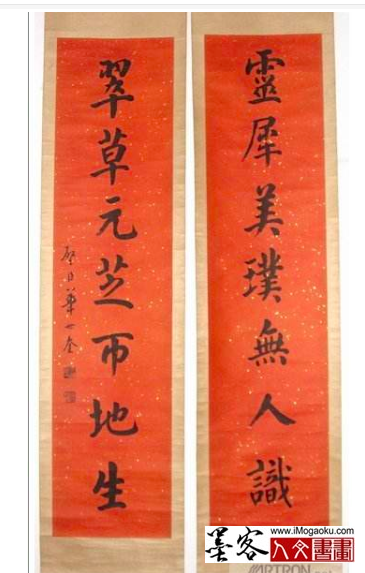 靈犀美璞無人識
翠草元芝帀地生
華世奎
www.iMogaoku.com
墨客人文書畫
ARTRON